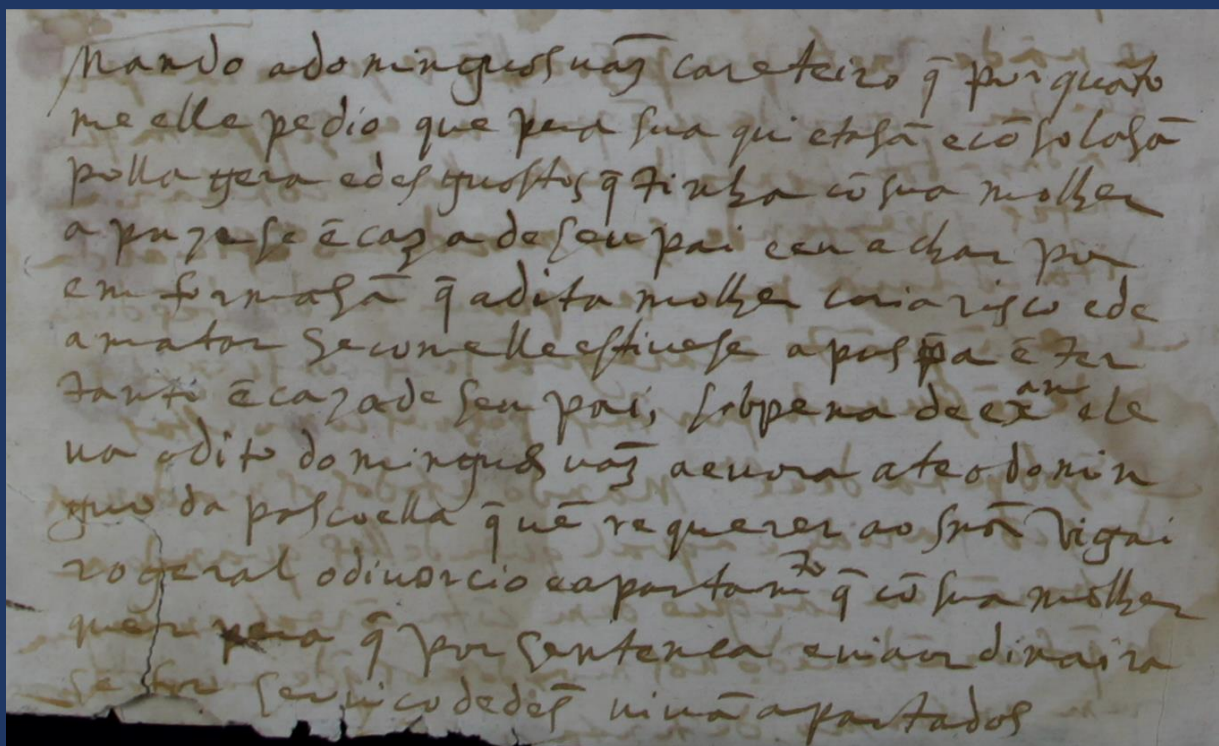 Mando a domingos uaz careteiro q̃ por quãto
me elle pedio que pera sua quietasã e cõsolasã
polla gera e desguostos q̃ tinha cõ sua molher
a puzese ẽ caza de seu pai e eu achar por
emformasã q̃ a dita molher coria risco e de
a matar se com elle estivese a pus ẽ
tanto ẽ caza de seu pai, sob pena de ex
ua o dito domingus uaz a euora ate o domin
guo da pascoella q̃ uẽ requerer ao snõr Vigai
ro geral o diuorcio e apartamto q̃ cõ sua molher
quer pera q̃ por sentenca e uia ordinaira
se for seruico de deș uiuã apartados